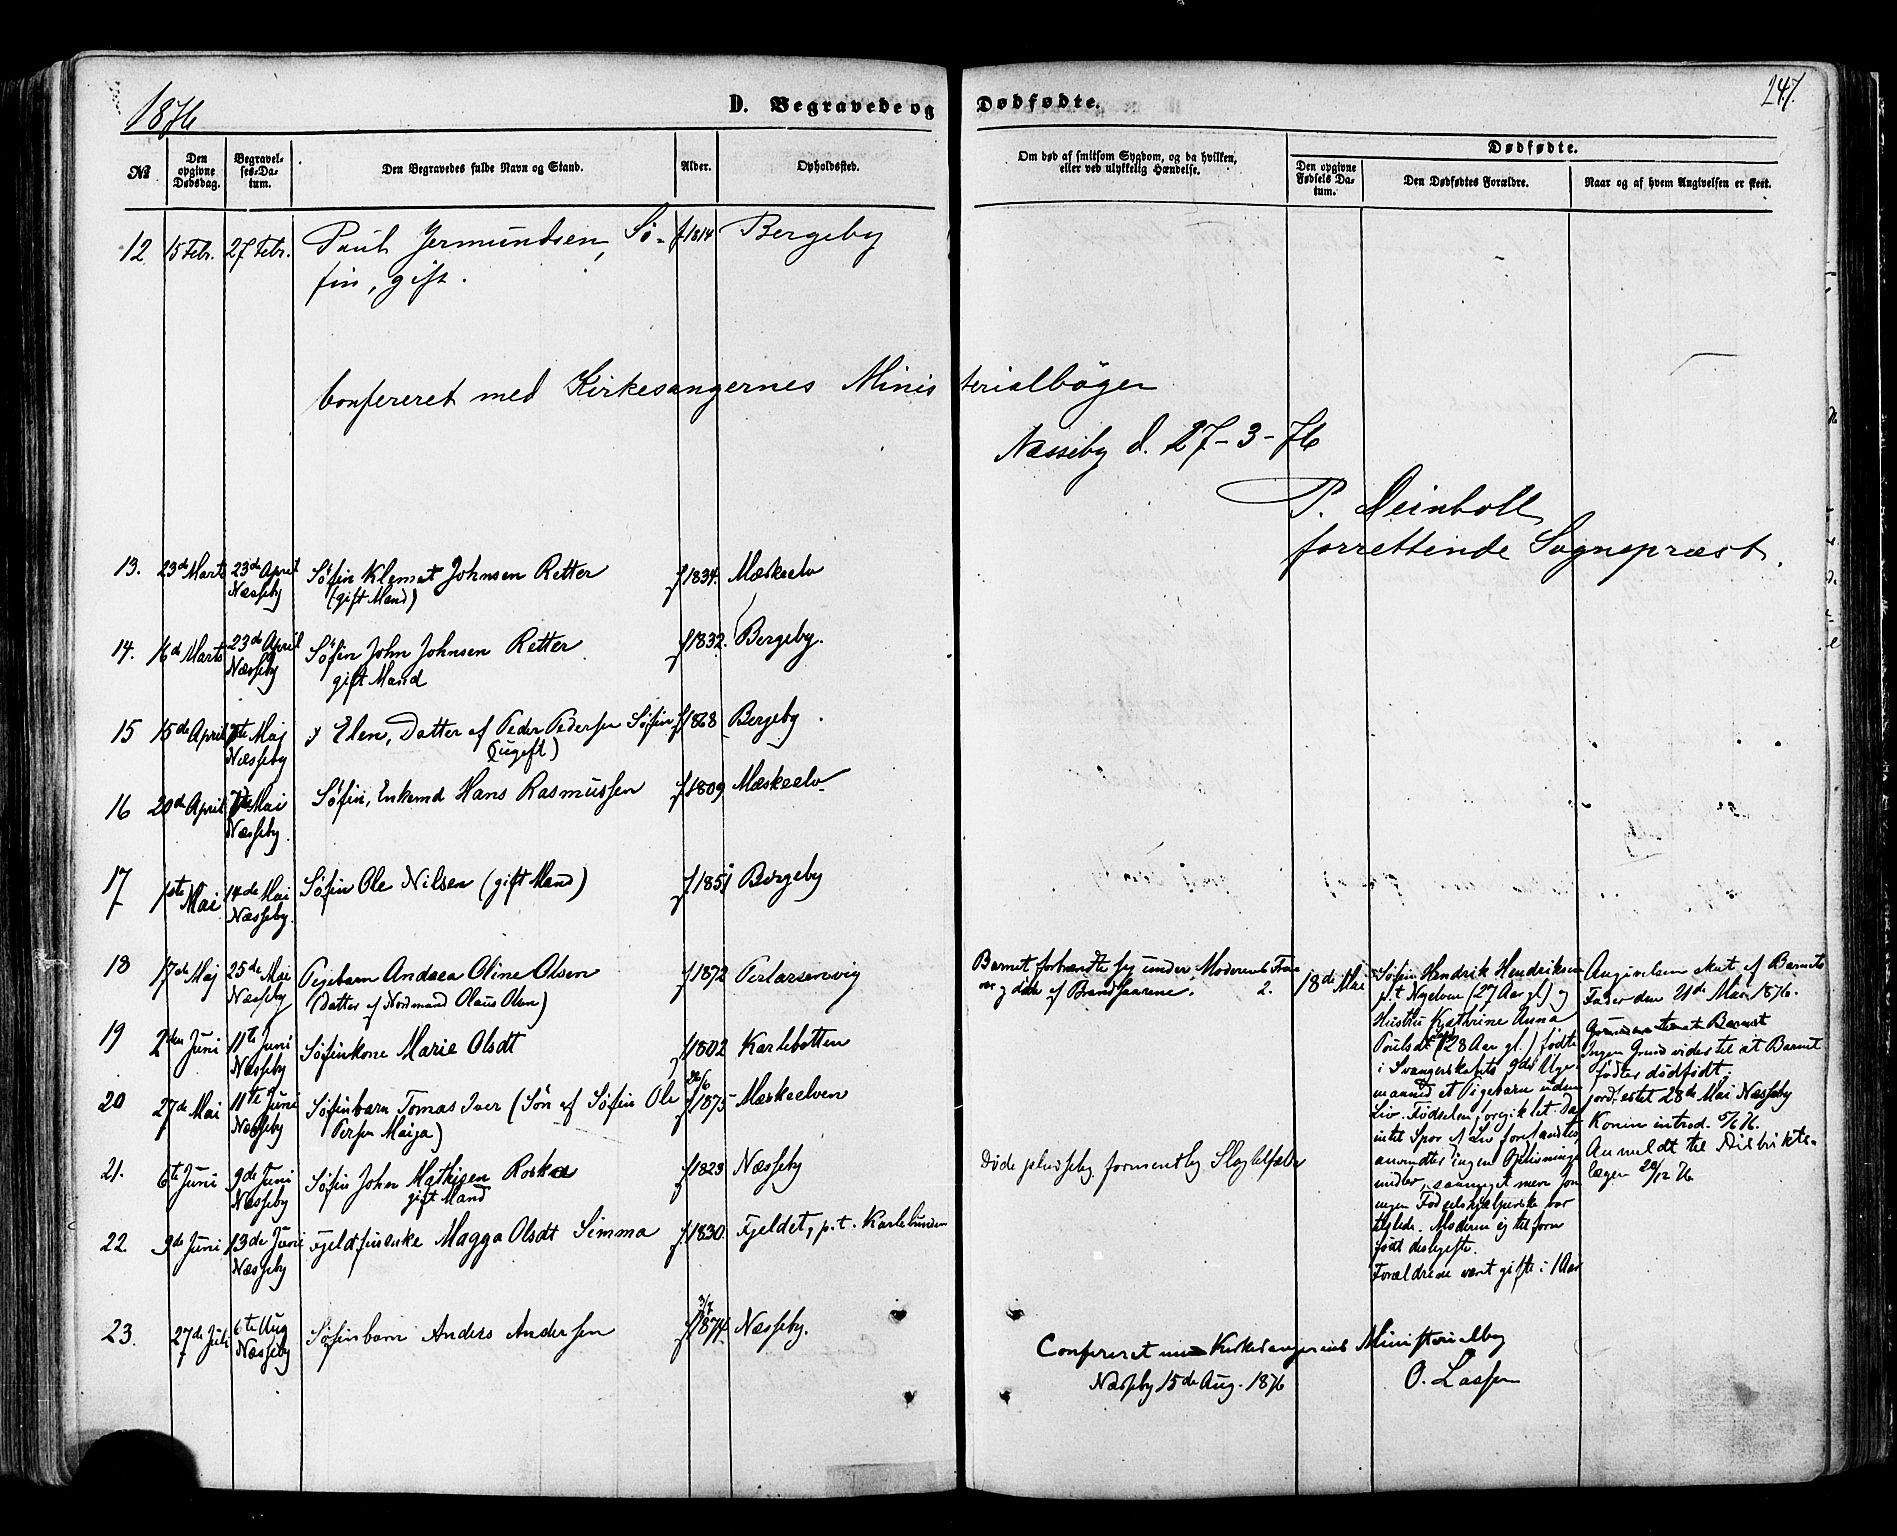 1876
D. Begravede og Dødfødte.
247.
No
Den opgivne Dødsdag.
Begravelses-Datum.
Den Begravedes fulde Navn og Stand.
Alder.
Opholdsted.
Om død af smitsom Sygdom, og da hvilken, eller ved ulykkelig Hændelse.
Dødfødte.
Den opgivne Fødsels Datum.
Den Dødfødtes Forældre.
Naar og af hvem Angivelsen er skeet.
12 15 Febr. 27 Febr. Paul Jermundsen, Sø- f 1814 Bergeby
fin, gift.
Confereret med Kirkesangernes Ministerialbøger
Næsseby d. 27-3-76
P. Deinboll
forrettende Sognepræst.
13. 23de Marts 23de April Søfin Klemet Johnsen Retter f 1834. Mæskeelv
Næsseby (gift Mand)
14. 16de Marts 23de April Søfin John Johnsen Retter f 1832. Bergeby.
Næsseby gift Mand
15 15de April 7te Maj Elen, Datter af Peder Pedersen Søfin, f 1868 Bergeby.
Næsseby (ugift)
16 20de April 7de Mai Søfin, Enkemd Hans Rasmussen f 1809 Mæskeelv
Næsseby.
17 1ste Mai 14de Mai Søfin Ole Nilsen (gift Mand) f 1851 Bergeby
Næsseby.
18 17de Maj 25de Mai Pigebarn Andaea Oline Olsen f 1872 Perlarsenvig
Næsseby (Datter af Nordmand Olaus Olsen)
Barnet forbrændte sig under Moderens
og døde af Brandsaarene.
2. 18de Mai
Søfin Hendrik Hendriksen
p.t. Nyelven (27 Aar gl.) og
Hustru Kathrine Anna
Poulsdt (28 Aar gl.) fødte
i Svangerskabets
et Pigebarn uden
Liv. Fødselen foregik let. Da
intet Spor af Liv forefandtes
anvendtes ingen Oplivnings
midler,
ingen Fødselshjælperske var
tilstede. Moderen ej tilforn
født
Forældrene været gifte i 1 Aar
Angivelsen skeet af Barnets
Fader den 21de Mai 1876.
Ingen Grund vides til at Barnet
fødtes dødfødt.
jordfæstet 28de Mai Næsseby
Konen introd.
Anmeldt til Distrikts-
lægen
19 2den Juni 11te Juni Søfinkone Marie Olsdt f 1802 Karlebotten
Næsseby
20 27de Mai 11te Juni Søfinbarn Tomas Iver (Søn af Søfin Ole f 26/6 1875 Mæskeelven
Næsseby Persen Maija)
21. 6te Juni 9de Juni Søfin John Mathisen Roska f 1823 Næsseby
Næsseby gift Mand
Døde pludselig, formentlig Slagtilfælde
22. 3de Juni 13de Juni Fjeldfinenke Magga Olsdt Simma f 1830. Fjeldet, p.t. Karlebunden
Næsseby
23. 27de Juli 6te Aug Søfinbarn Anders Andersen f 3/7 1874. Næsseby.
Næsseby
Confereret med Kirkesangerens Ministerialbog
Næsseby 15de Aug. 1876
O. Lassen